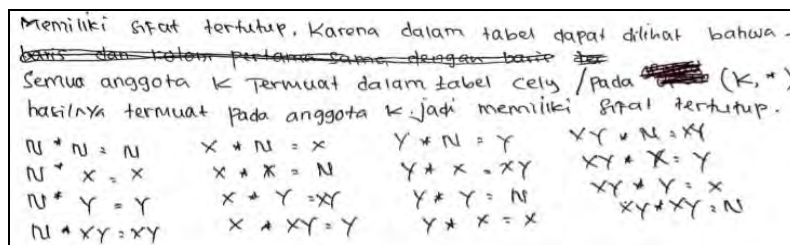 Memiliki sifat tertutup. Karena dalam tabel dapat dilihat bahwa
baris dan kolom pertama sama dengan baris
Semua anggota K Termuat dalam tabel cely / pada (K, *)
hasilnya termuat pada anggota K. jadi memiliki sifat tertutup.
N * N = N X * N = X Y * N = Y XY * N = XY
N * X = X X * X = N Y * X = XY XY * X = Y
N * Y = Y X * Y = XY Y * Y = N XY * Y = X
N * XY = XY X * XY = Y Y * X = X XY * XY = N